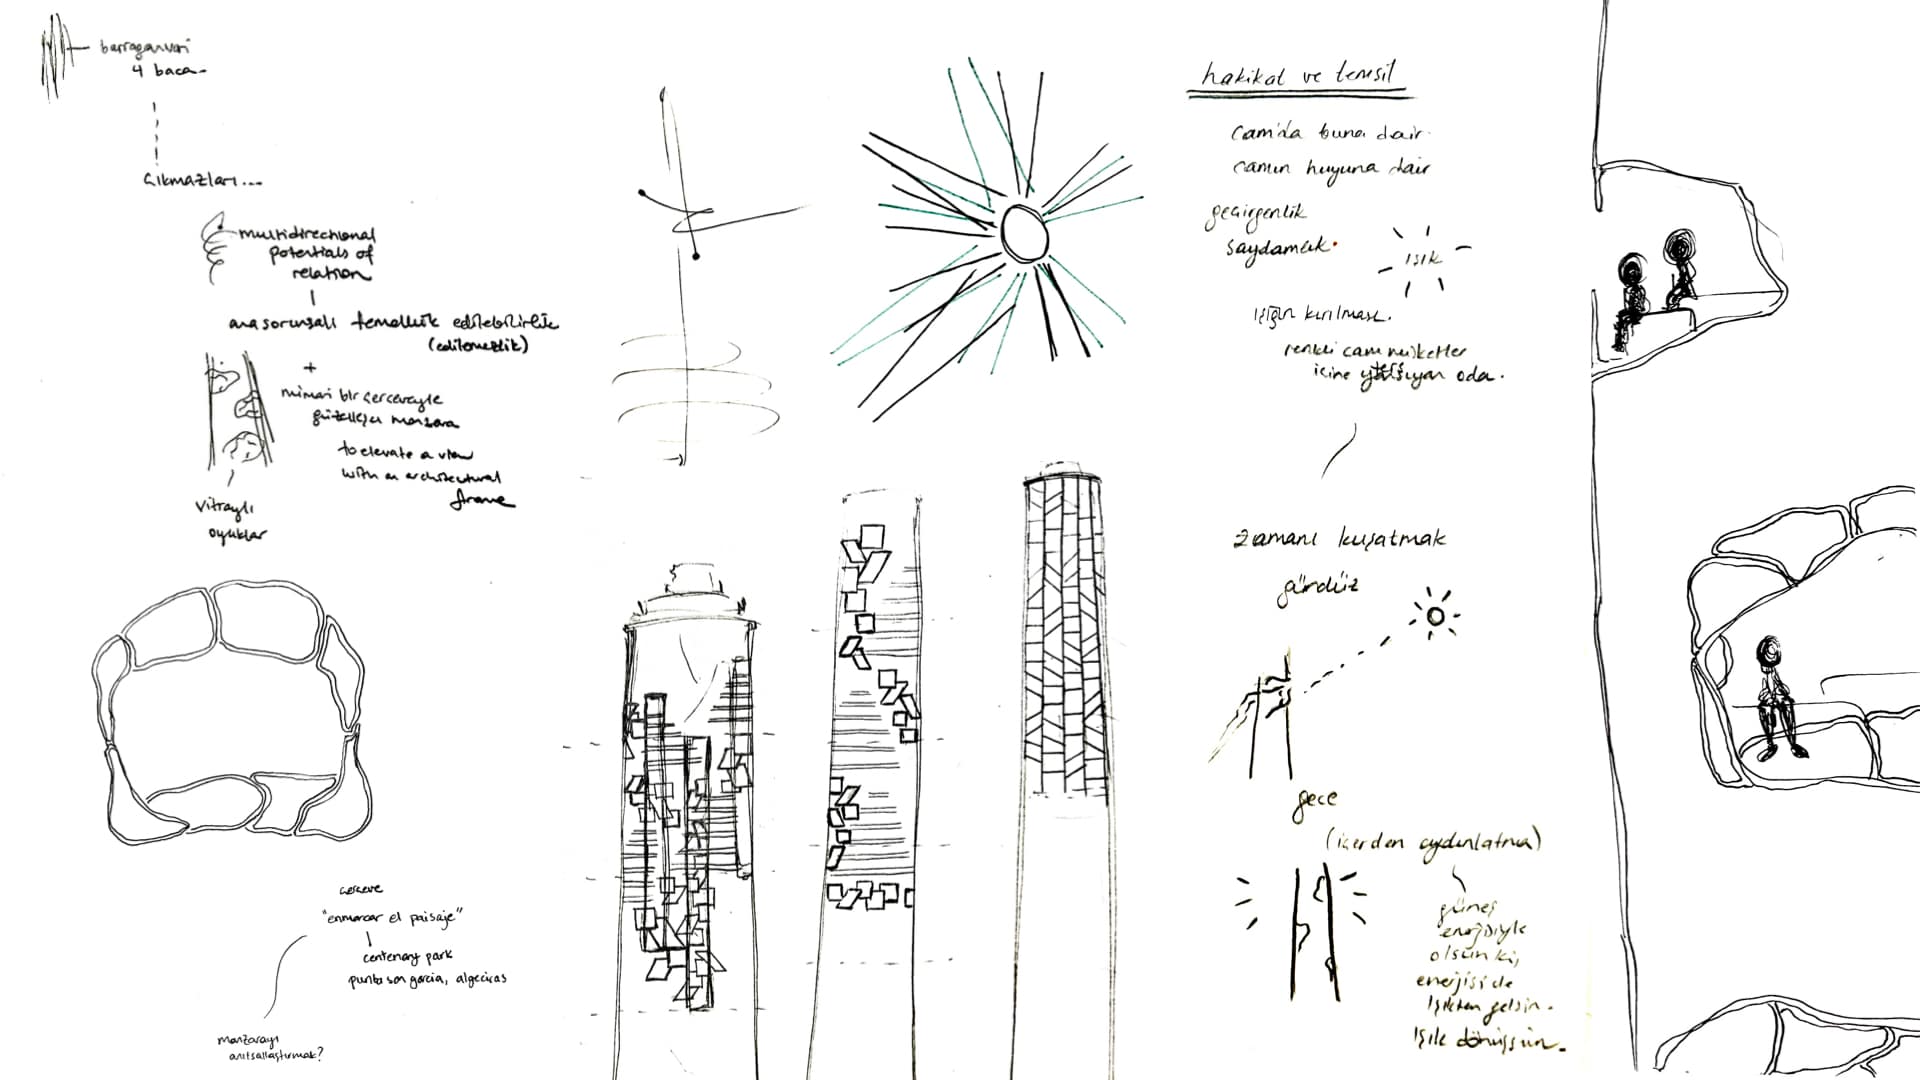 barraganvari
4 baca
çıkmazları...
multidirectional
potentials of
relation
ana sorunsalı temellük edilebilirlik
(edilemezlik)
+
mimari bir çerçeveyle
güzelleşen manzara
to elevate a view
with an architectural
frame
vitraylı
oyuklar
çerçeve
"enmarcar el paisaje"
centenary park
punta san garcia, algeciras
manzarayı
anıtsallaştırmak?
hakikat ve temsil
cam'da buna dair
camın huyuna dair
geçirgenlik
saydamlık.
ışık
ışığın kırılması.
renkli cam
içine yansıyan oda.
zamanı kuşatmak
gündüz
gece
(içerden aydınlatma)
güneş
enerjisiyle
olsun ki,
enerjisi de
ışıktan gelsin.
ışık dönüşsün.